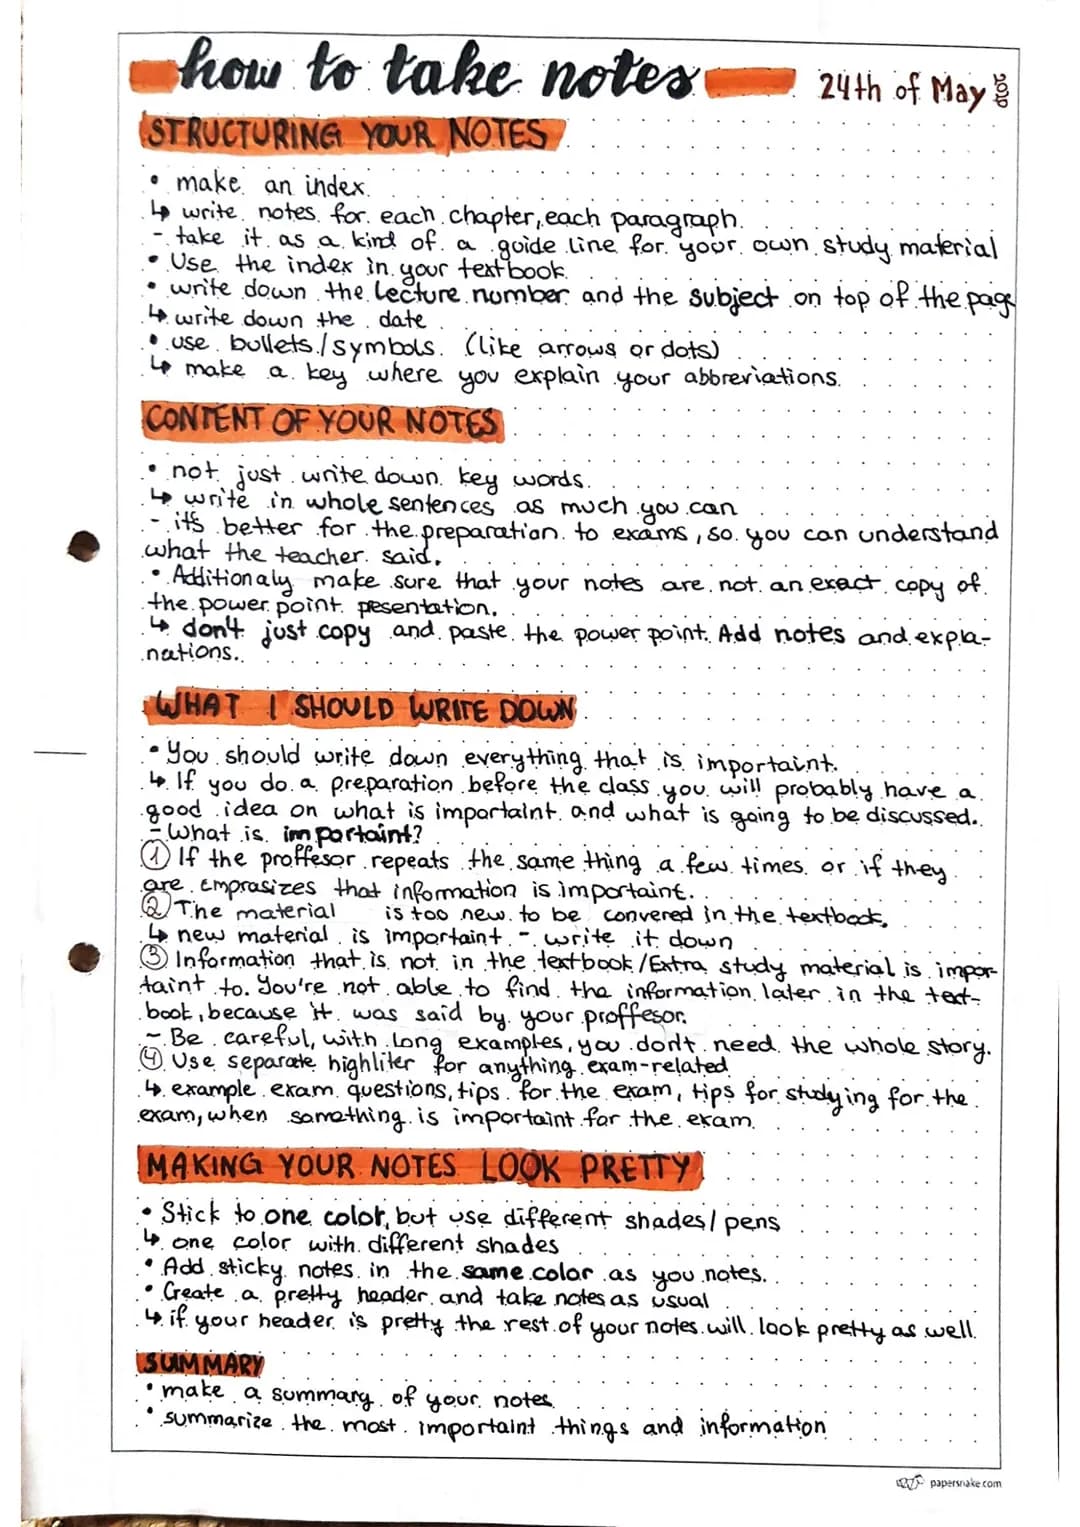 how to take notes 24th of May 2020
STRUCTURING YOUR NOTES
• make an index.
↳ write notes for each chapter, each paragraph.
- take it as a kind of a guide line for your own study material
• Use the index in your textbook.
• write down the lecture number and the subject on top of the page
↳ write down the date
• use bullets/symbols. (like arrows or dots)
↳ make a key where you explain your abbreviations.
CONTENT OF YOUR NOTES
• not just write down key words.
↳ write in whole sentences as much you can
- it's better for the preparation to exams, so you can understand
what the teacher said.
• Additionaly make sure that your notes are not an exact copy of
the power point presentation.
↳ don't just copy and paste the power point. Add notes and expla-
nations.
WHAT I SHOULD WRITE DOWN
• You should write down everything that is importaint.
↳ If you do a preparation before the class you will probably have a
good idea on what is importaint and what is going to be discussed.
- What is importaint?
① If the proffesor repeats the same thing a few times or if they
are emprasizes that information is importaint.
② The material is too new to be convered in the textbook.
↳ new material is importaint - write it down
③ Information that is not in the textbook/Extra study material is impor-
taint to. You're not able to find the information later in the text-
book, because it was said by your proffesor.
- Be careful, with long examples, you don't need the whole story.
④ Use separate highliter for anything exam-related
↳ example exam questions, tips for the exam, tips for studying for the
exam, when something is importaint for the exam.
MAKING YOUR NOTES LOOK PRETTY
• Stick to one color, but use different shades/pens
↳ one color with different shades
• Add sticky notes in the same color as you notes.
• Create a pretty header and take notes as usual
↳ if your header is pretty the rest of your notes will look pretty as well.
SUMMARY
• make a summary of your notes
• summarize the most importaint things and information
papersnake.com